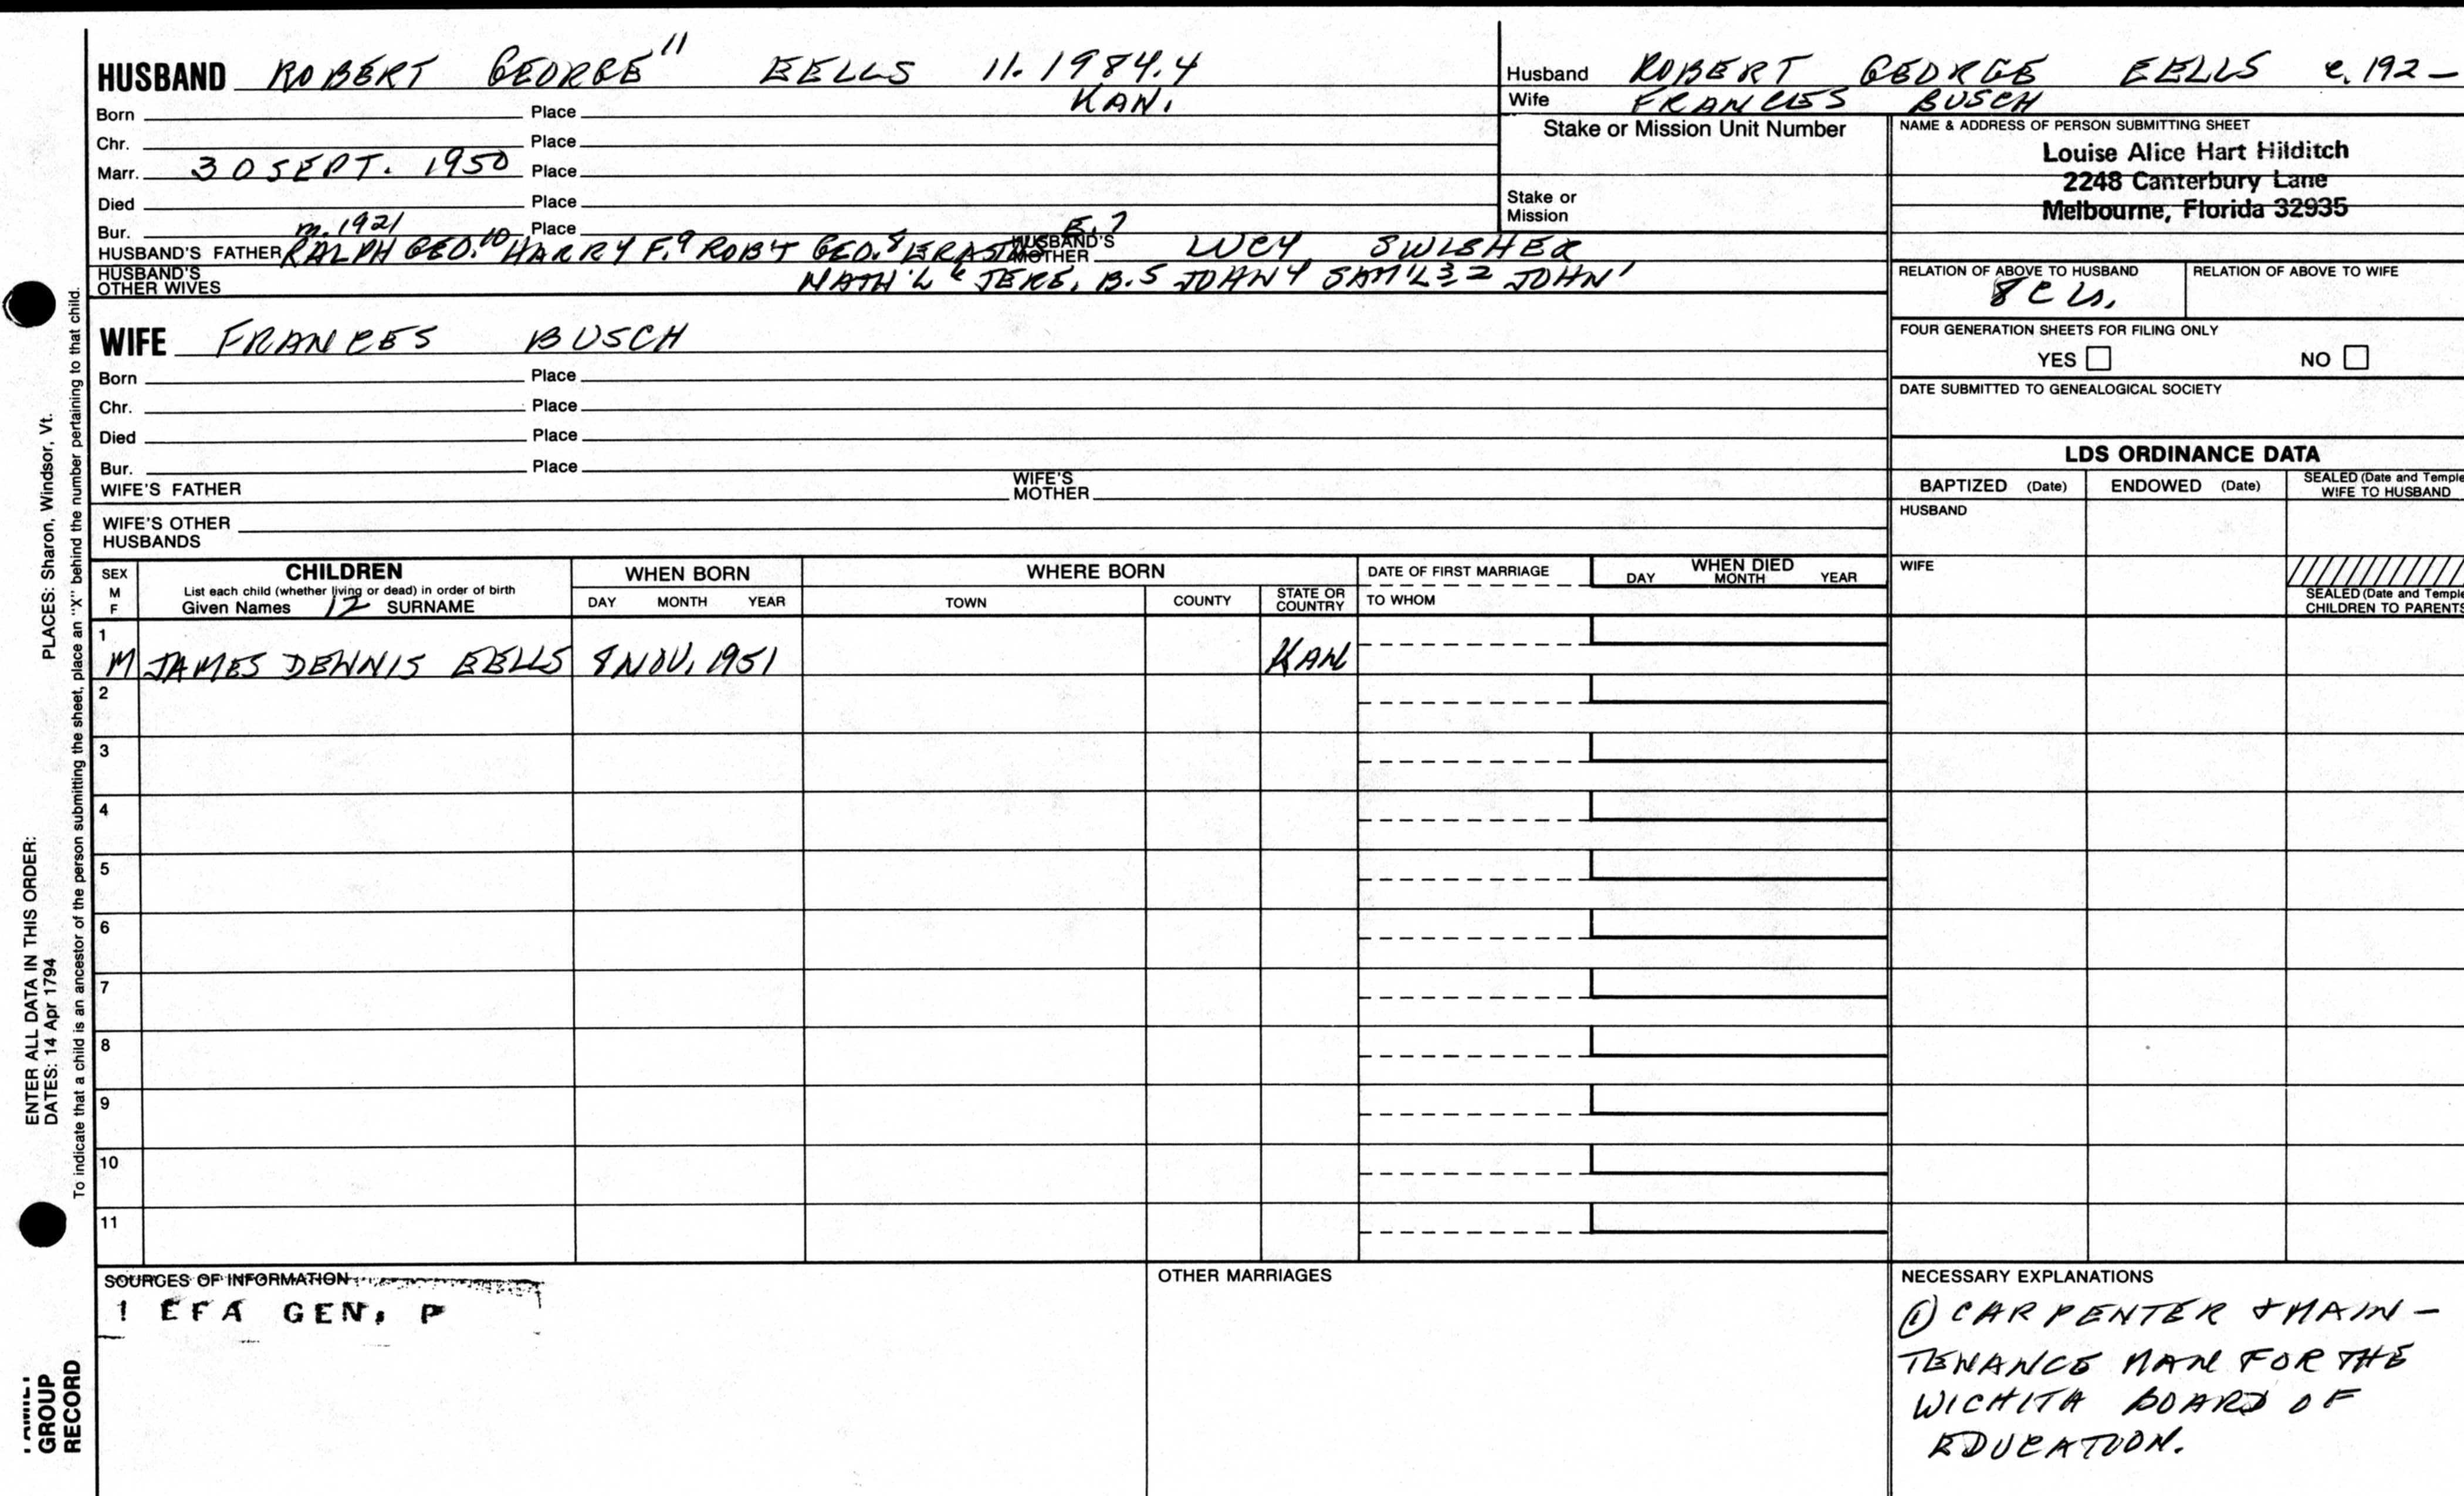 HUSBAND ROBERT GEORGE 11 EELLS 11.1984.4
Born Place KAN.
Chr. Place
Marr. 30 SEPT. 1950 Place
Died Place
Bur. m. 1921 Place E.7
HUSBAND'S FATHER RALPH GEO.10 HARRY F.9 ROB'T GEO.8 HUSBAND'S MOTHER LUCY SWISHER
HUSBAND'S OTHER WIVES NATH'L 6 JERE. B.5 JOHN 4 SAM'L 3 2 JOHN 1
Husband ROBERT GEORGE EELLS c. 192–
Wife FRANCES BUSCH
Stake or Mission Unit Number
Stake or
Mission
NAME & ADDRESS OF PERSON SUBMITTING SHEET
Louise Alice Hart Hilditch
2248 Canterbury Lane
Melbourne, Florida 32935
RELATION OF ABOVE TO HUSBAND RELATION OF ABOVE TO WIFE
8 CU.
FOUR GENERATION SHEETS FOR FILING ONLY
YES NO
DATE SUBMITTED TO GENEALOGICAL SOCIETY
WIFE FRANCES BUSCH
Born Place
Chr. Place
Died Place
Bur. Place
WIFE'S FATHER WIFE'S MOTHER
WIFE'S OTHER
HUSBANDS
LDS ORDINANCE DATA
BAPTIZED (Date) ENDOWED (Date) SEALED (Date and Temple
WIFE TO HUSBAND
HUSBAND
WIFE
SEALED (Date and Temple
CHILDREN TO PARENTS
SEX
M
F
CHILDREN
List each child (whether living or dead) in order of birth
Given Names 12 SURNAME
WHEN BORN
DAY MONTH YEAR
WHERE BORN
TOWN COUNTY STATE OR COUNTRY
DATE OF FIRST MARRIAGE
TO WHOM
WHEN DIED
DAY MONTH YEAR
1
M JAMES DENNIS EELLS 8 NOV. 1951 KAN
2
3
4
5
6
7
8
9
10
11
SOURCES OF INFORMATION
1 EFA GEN. P
OTHER MARRIAGES
NECESSARY EXPLANATIONS
① CARPENTER & MAIN-
TENANCE MAN FOR THE
WICHITA BOARD OF
EDUCATION.
ENTER ALL DATA IN THIS ORDER:
DATES: 14 Apr 1794 PLACES: Sharon, Windsor, Vt.
To indicate that a child is an ancestor of the person submitting the sheet, place an "X" behind the number pertaining to that child.
FAMILY
GROUP
RECORD